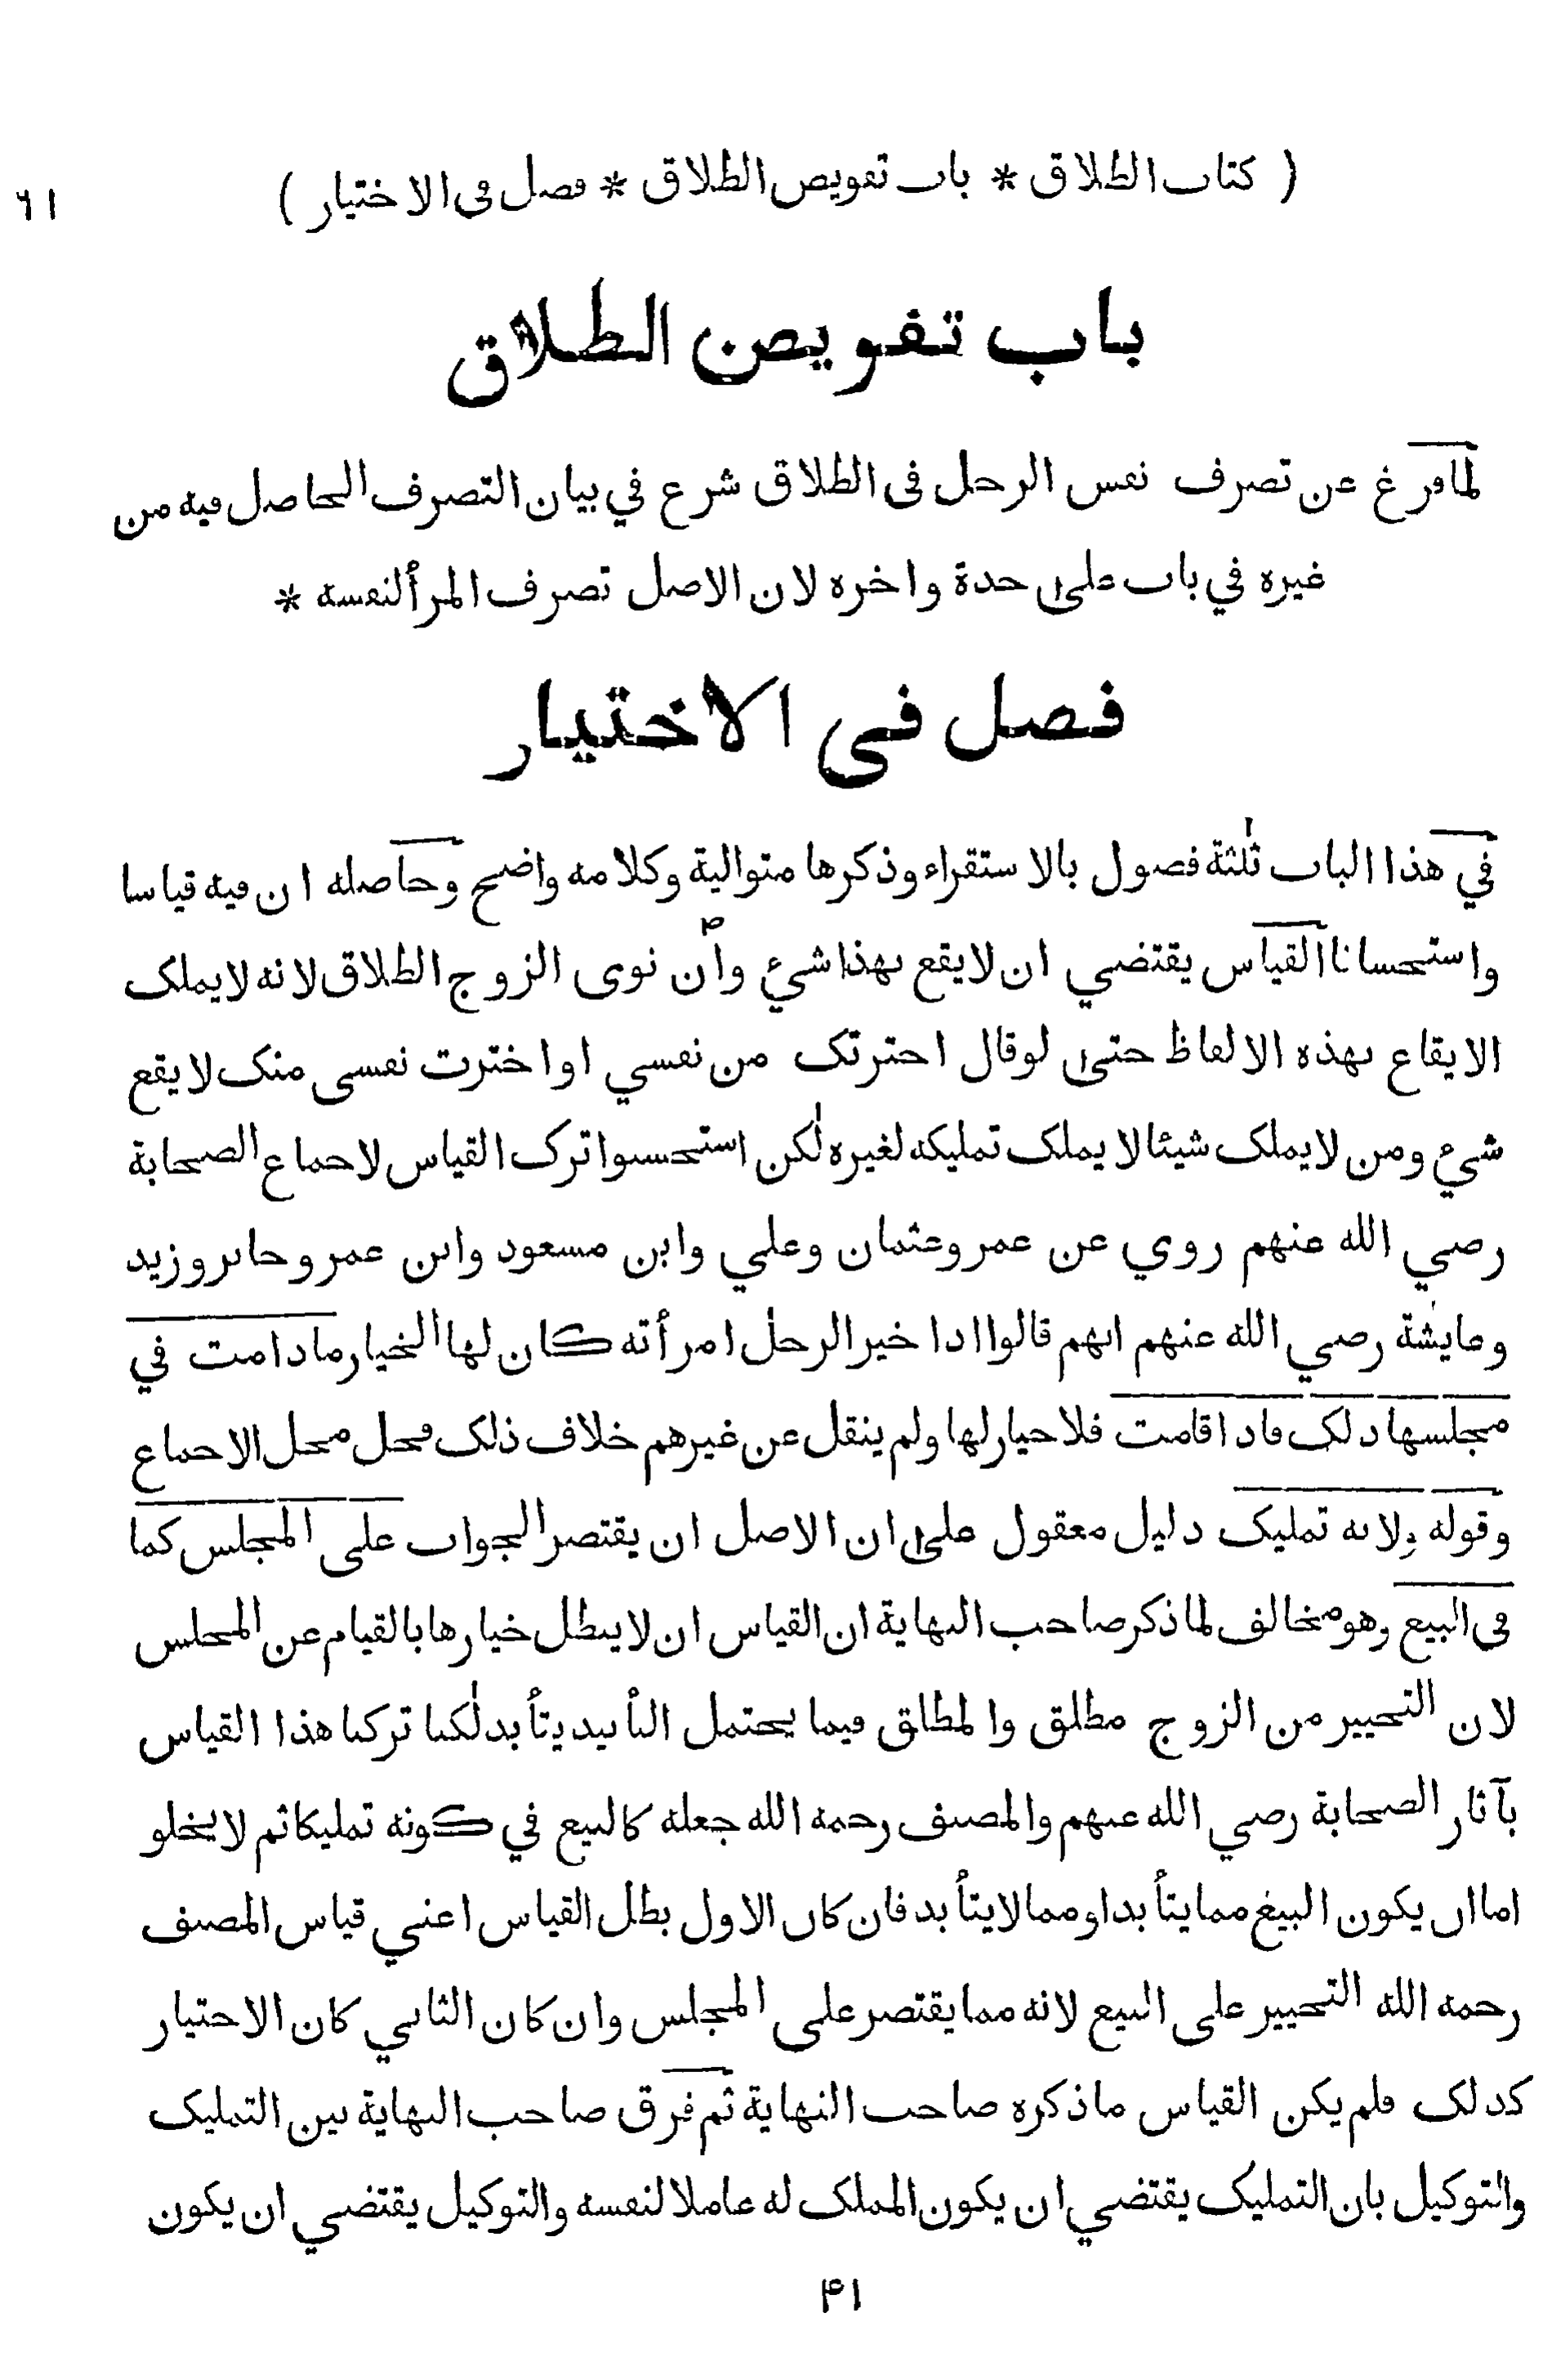 ( كتاب الطلاق * باب تفويض الطلاق * فصل في الاختيار )
٦١
باب تفويض الطلاق
لما فرغ عن تصرف نفس الرجل فى الطلاق شرع في بيان التصرف الحاصل فيه من
غيره في باب على حدة واخره لان الاصل تصرف المرأ لنفسه *
فصل فى الاختيار
في هذا الباب ثلثة فصول بالاستقراء وذكرها متوالية وكلامه واضح وحاصله ان فيه قياسا
واستحسانا القياس يقتضي ان لا يقع بهذا شيء وان نوى الزوج الطلاق لانه لا يملك
الايقاع بهذه الالفاظ حتى لوقال اخترتك من نفسي او اخترت نفسى منك لا يقع
شيء ومن لايملك شيئا لا يملك تمليكه لغيره لكن استحسوا ترك القياس لاجماع الصحابة
رضي الله عنهم روي عن عمر وعثمان وعلي وابن مسعود وابن عمر وجابر وزيد
وعايشة رضي الله عنهم انهم قالوا اذا خير الرجل امرأته كان لها الخيار مادامت في
مجلسها ذلك فاذا قامت فلا خيار لها ولم ينقل عن غيرهم خلاف ذلك فحل محل الاجماع
وقوله ولانه تمليك دليل معقول على ان الاصل ان يقتصر الجواب على المجلس كما
فى البيع وهو مخالف لما ذكر صاحب النهاية ان القياس ان لا يبطل خيارها بالقيام عن المجلس
لان التخيير من الزوج مطلق والمطلق فيما يحتمل التأبيد يتأبد لكنا تركنا هذا القياس
بآثار الصحابة رضي الله عنهم والمصنف رحمه الله جعله كالبيع في كونه تمليكا ثم لا يخلو
اما ان يكون البيع مما يتأبد او مما لا يتأبد فان كان الاول بطل القياس اعني قياس المصنف
رحمه الله التخيير على البيع لانه مما يقتصر على المجلس وان كان الثاني كان الاختيار
كذلك فلم يكن القياس ما ذكره صاحب النهاية ثم فرق صاحب النهاية بين التمليك
والتوكيل بان التمليك يقتضي ان يكون المملك له عاملا لنفسه والتوكيل يقتضي ان يكون
۴۱